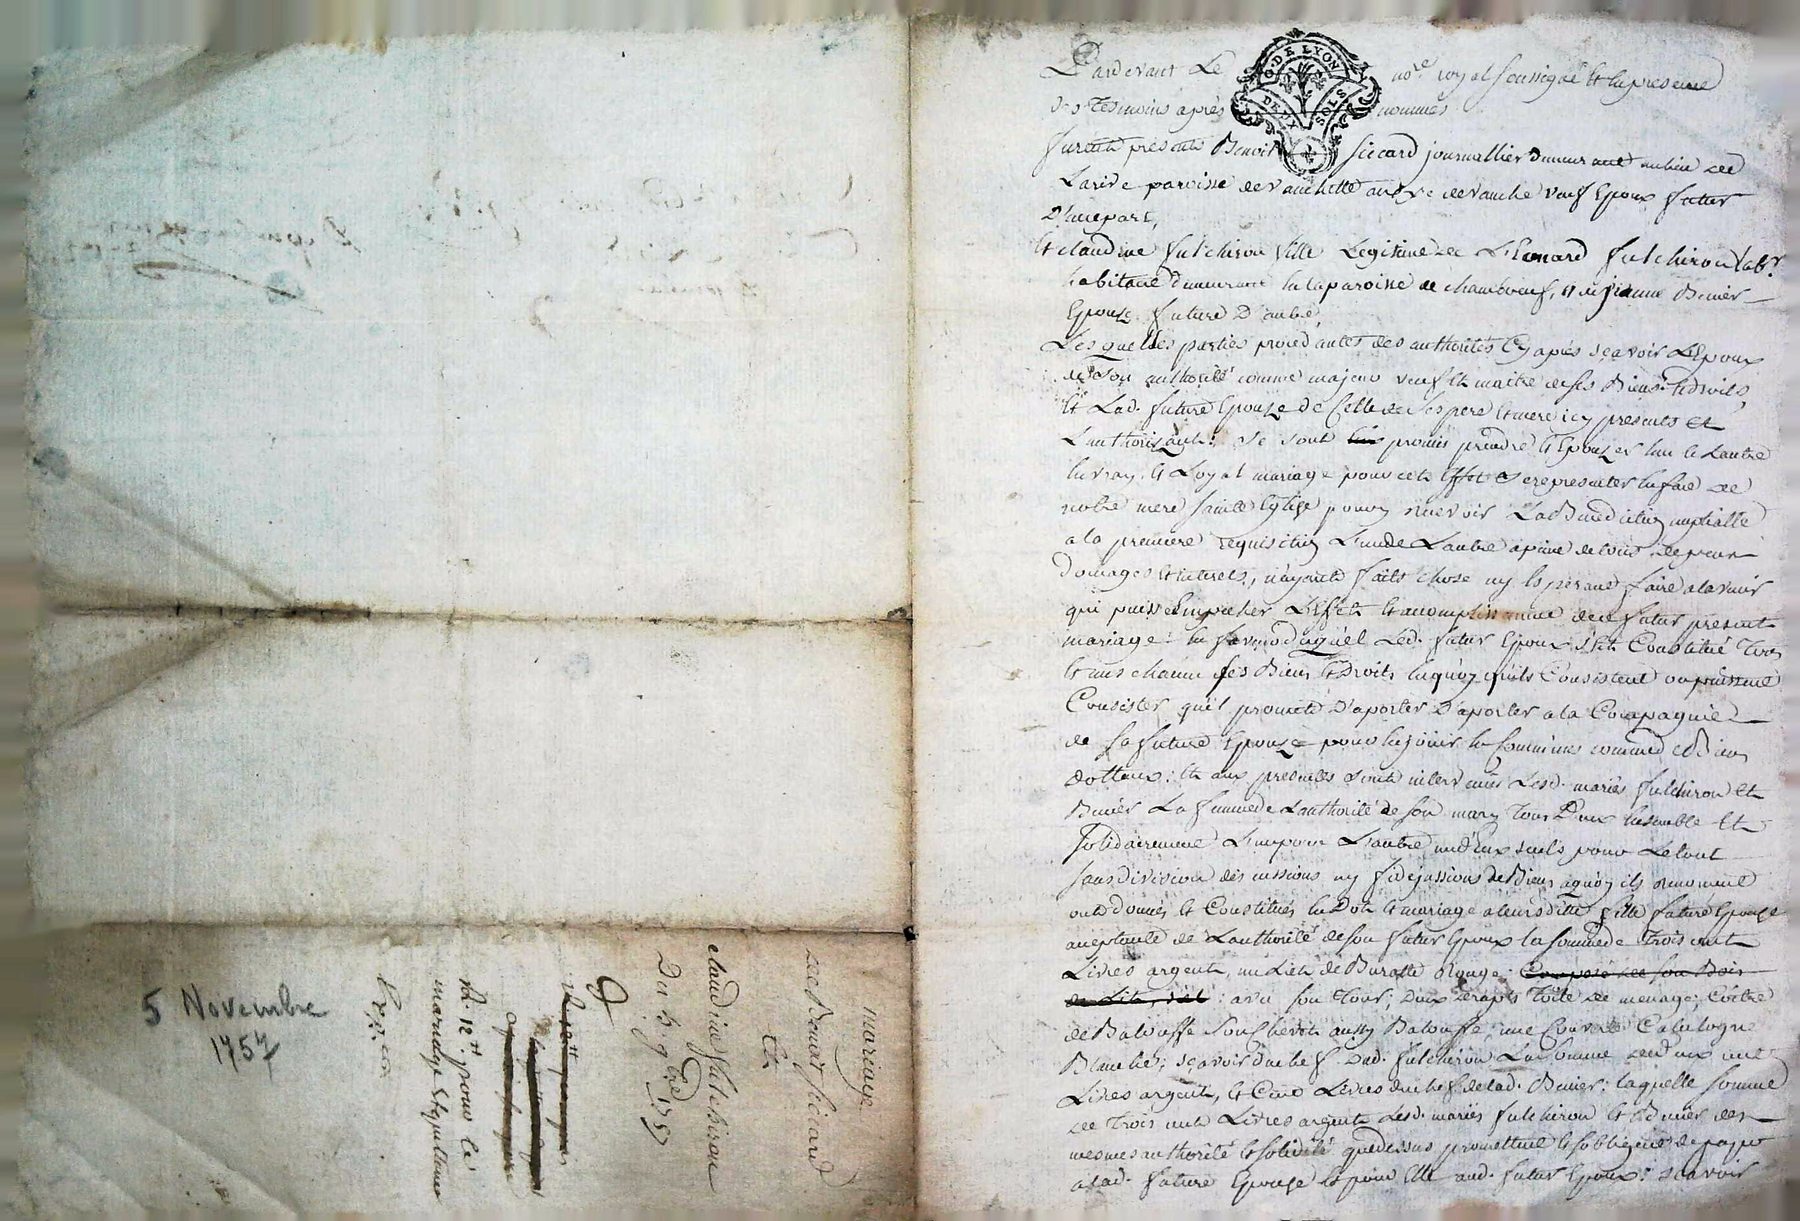 mariage
de Benoit siccard
Et
claudine fulchiron
Du 5 9bre 1757
R. 12tt pour le
mariage
5 Novembre
1757
G. DE LYON
DEUX SOLS
Pardevant Le nore royal soussigné Et en presence
des Tesmoins après nommés
furent presents Benoit siccard journallier demeurant au lieu de
Larive paroisse de veauchette veuf Epoux futur
D'une part,
Et claudine fulchiron fille Legitime de Leonard fulchiron labr
habitant demeurant en la paroisse de chambœuf, Et de jeanne Benier
Epouse future D'autre,
Les quelles parties procedantes des authorités Cy après sçavoir L'Epoux
de son authorité comme majeur veuf Et maitre de ses Biens Et droits,
Et Lad. future Epouse de Celle de ses pere Et mere icy presents Et
L'authorisants: se sont promis prendre Et Epouser L'un Et L'autre
En vray Et Loyal mariage pour cet Effet se representer En face de
notre mere sainte Eglise pour y recevoir La Benediction nuptialle
a la premiere requisition L'un de L'autre a peine de tous depens
Domages Et interets, n'ayants faits chose ny Esperant faire a lavenir
qui puisse Empecher L'Effet Et accomplissement de ce futur present
mariage: En faveur duquel Led. futur Epoux s'Est Constitué Tous
Et uns chacun ses Biens Et Droits En quoy qu'ils Consistent ou puissent
Consister qu'il promet D'aporter D'aporter a la Compagnie
de sa future Epouse pour En jouir En commun comme de Bien
dottaux: Et aux presentes sont intervenus Lesd. mariés fulchiron Et
Benier La femme de L'authorité de son mary Tous Deux Ensemble Et
solidairement L'un pour L'autre un d'Eux seuls pour Le tout
sans division discussions ny fidejussions de Biens a quoy ils renoncent
ont donnés Et Constitués En Dot Et mariage a leur ditte fille future Epouse
acceptante de L'authorité de son futur Epoux La somme de Trois cent
Livres argent, un Lit de Buratte Rouge Composé de son Bois
de Lit: avec son Tour; Deux draps Toile de menage; Coitre
de Balouffe Cussy Balouffe, une Couverte Catalogne
Blanche; sçavoir du chef Dud. fulchiron La somme de deux cent
Livres argent, Et Cent Livres du chef de lad. Benier: laquelle somme
de Trois cent Livres argent Lesd. mariés fulchiron Et Benier des
mesmes authorité Et solidité que dessus promettent Et s'obligent de payer
a lad. future Epouse Et pour Elle aud. futur Epoux: sçavoir